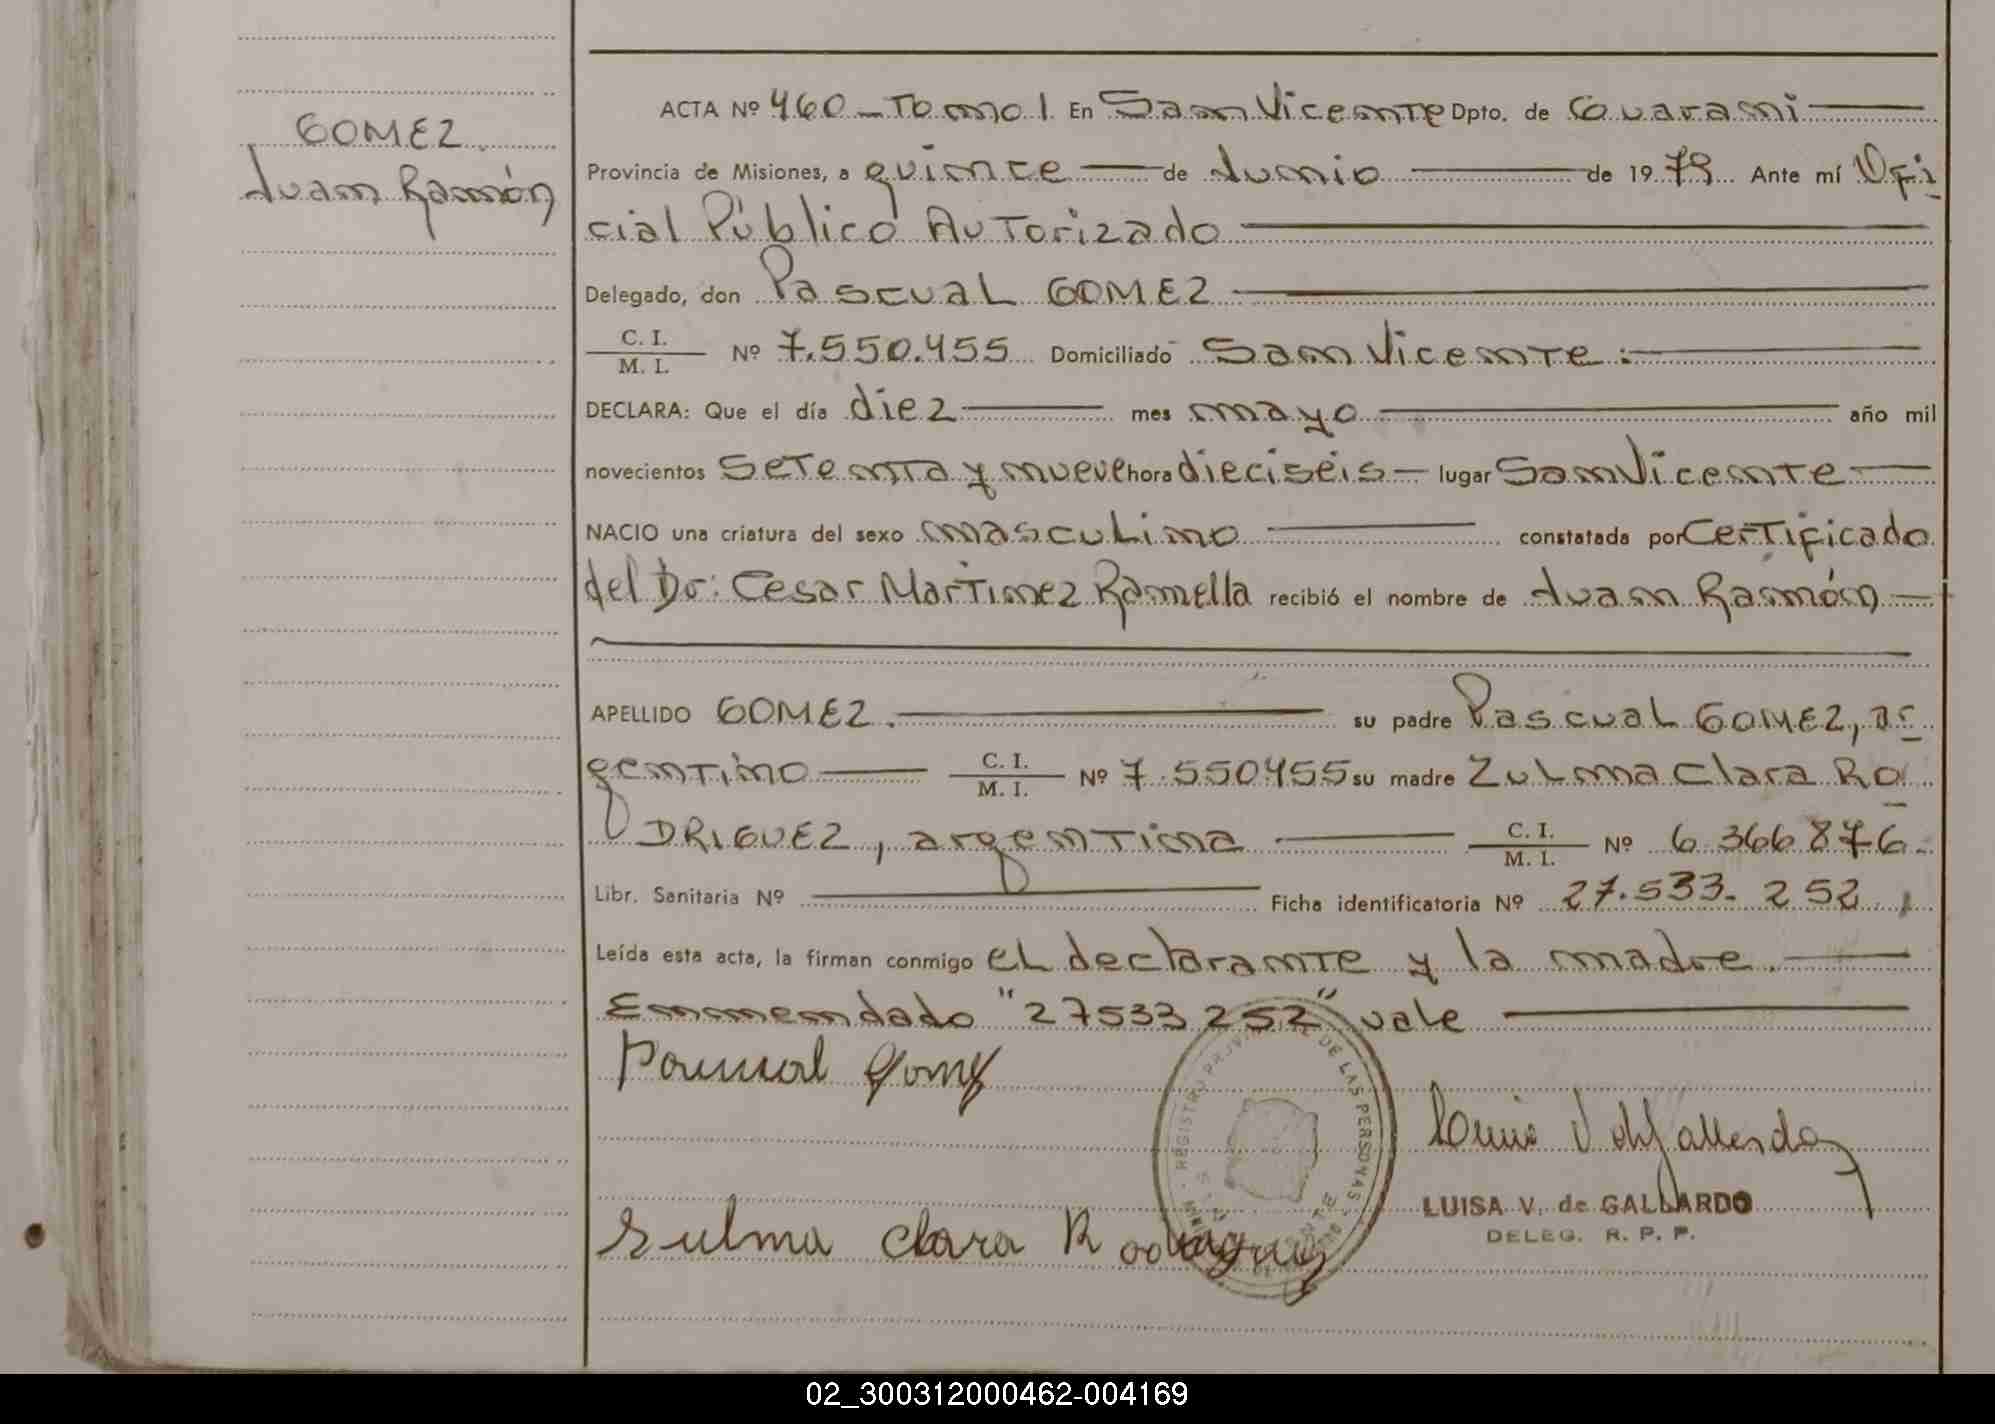 GOMEZ
Juan Ramón
ACTA Nº 460 - Tomo I En San Vicente Dpto. de Guarani
Provincia de Misiones, a quince de Junio de 1979 Ante mí Ofi
cial Público Autorizado
Delegado, don Pascual GOMEZ
C. I.
M. I. Nº 7.550.455 Domiciliado San Vicente.
DECLARA: Que el día diez mes mayo año mil
novecientos setenta y nueve hora dieciseis lugar San Vicente
NACIO una criatura del sexo masculino constatada por Certificado
del Dr: Cesar Martinez Ramella recibió el nombre de Juan Ramón
APELLIDO GOMEZ. su padre Pascual GOMEZ, ar
gentino C. I. M. I. Nº 7.550455 su madre Zulma Clara RO
DRIGUEZ, argentina C. I. M. I. Nº 6.366876.
Libr. Sanitaria Nº Ficha identificatoria Nº 27.533.252
Leída esta acta, la firman conmigo el declarante y la madre.
Enmendado "27533252" vale
Pascual Gomez
REGISTRO PROVINCIAL DE LAS PERSONAS
LUISA V. de GALLARDO
DELEG. R. P. P.
Sulma Clara Rodriguez
02_300312000462-004169